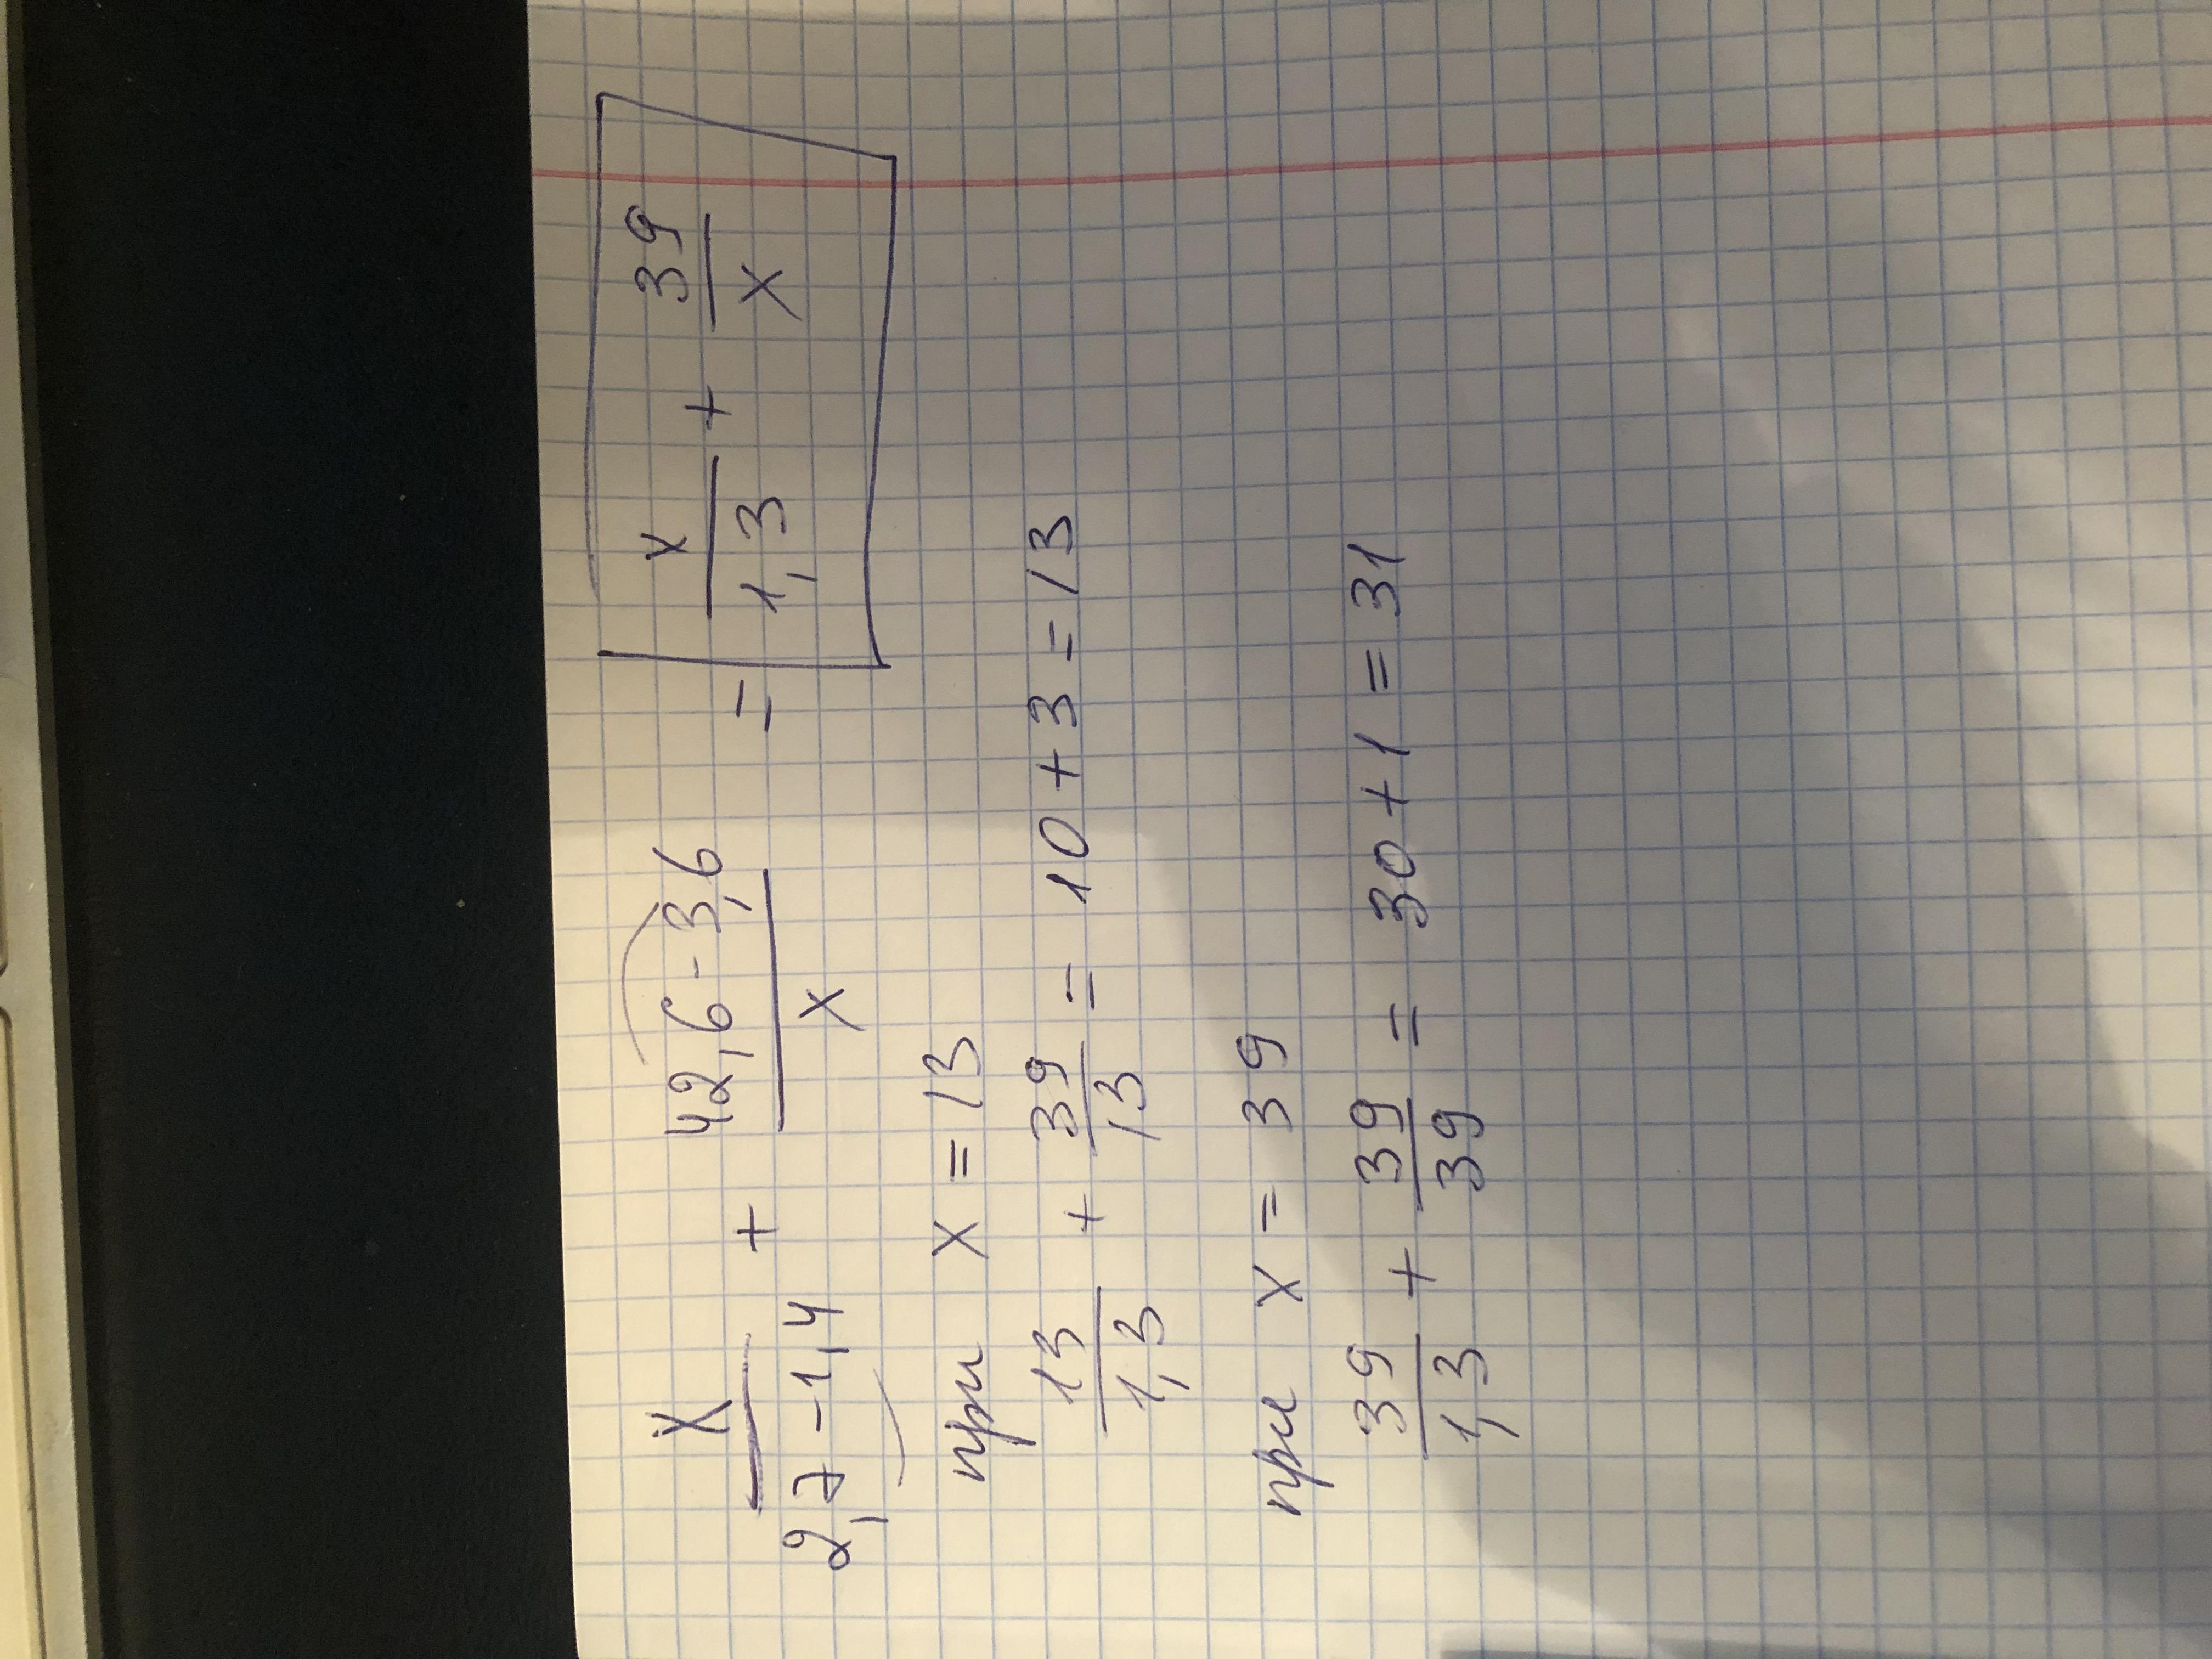 x/(2,7-1,4) + (42,6-3,6)/x = x/1,3 + 39/x
при x=13
13/1,3 + 39/13 = 10+3=13
при x=39
39/1,3 + 39/39 = 30+1=31